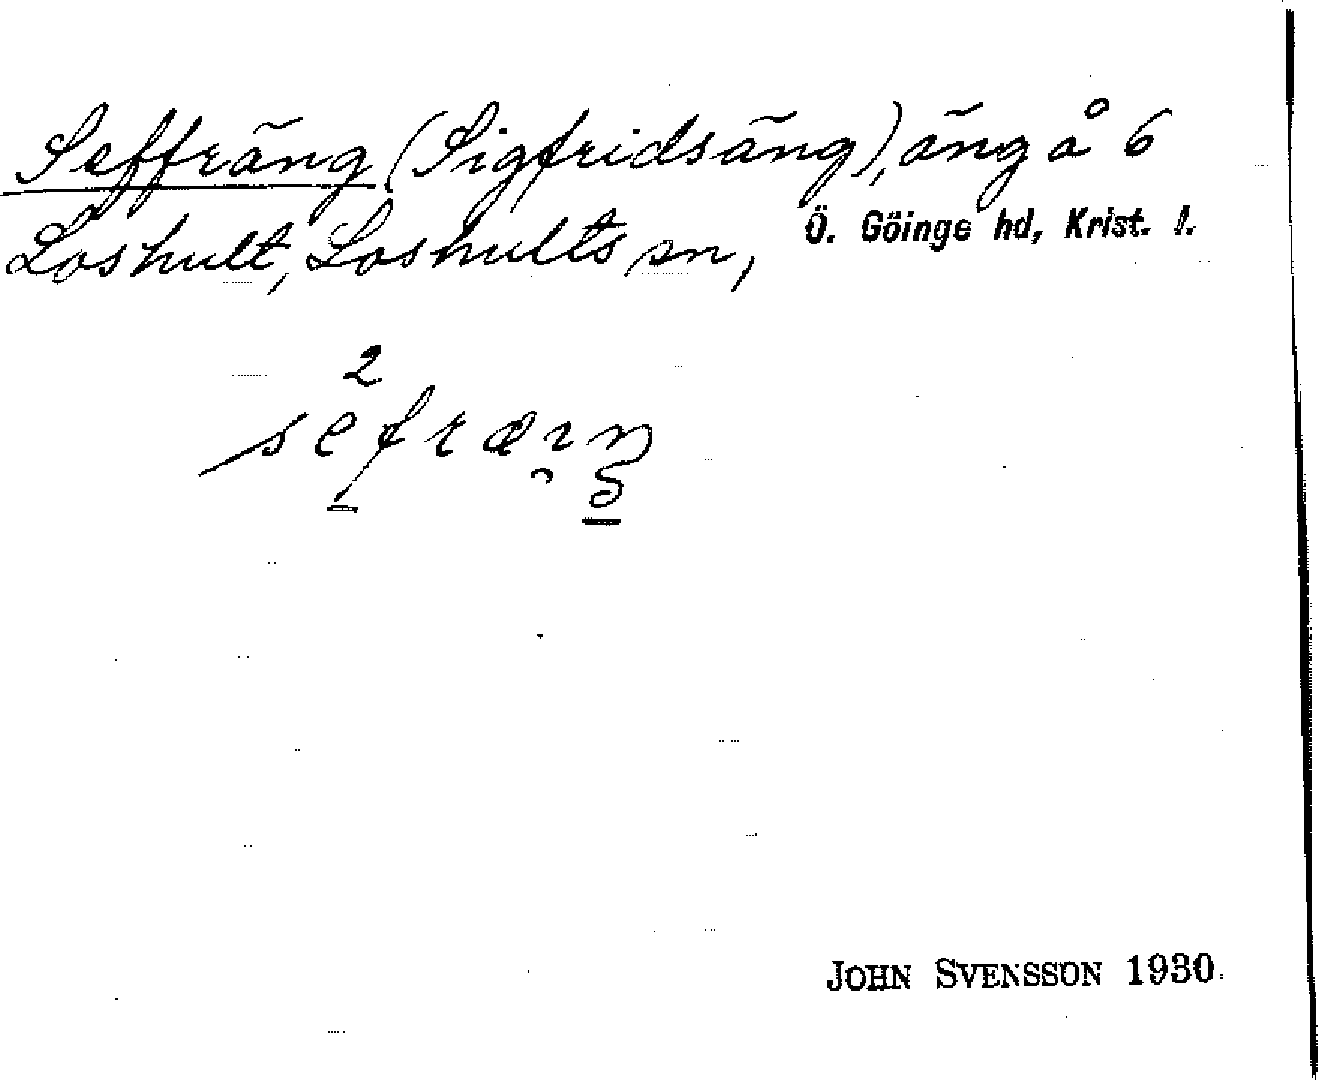 Seffräng (Sigfridsäng), äng å 6
Loshult, Loshults sn, Ö. Göinge hd, Krist. l.
2
JOHN SVENSSON 1930.